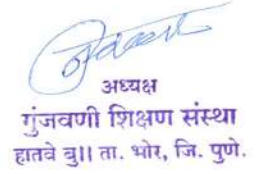 अध्यक्ष
गुंजवणी शिक्षण संस्था
हातवे बु॥ ता. भोर, जि. पुणे.